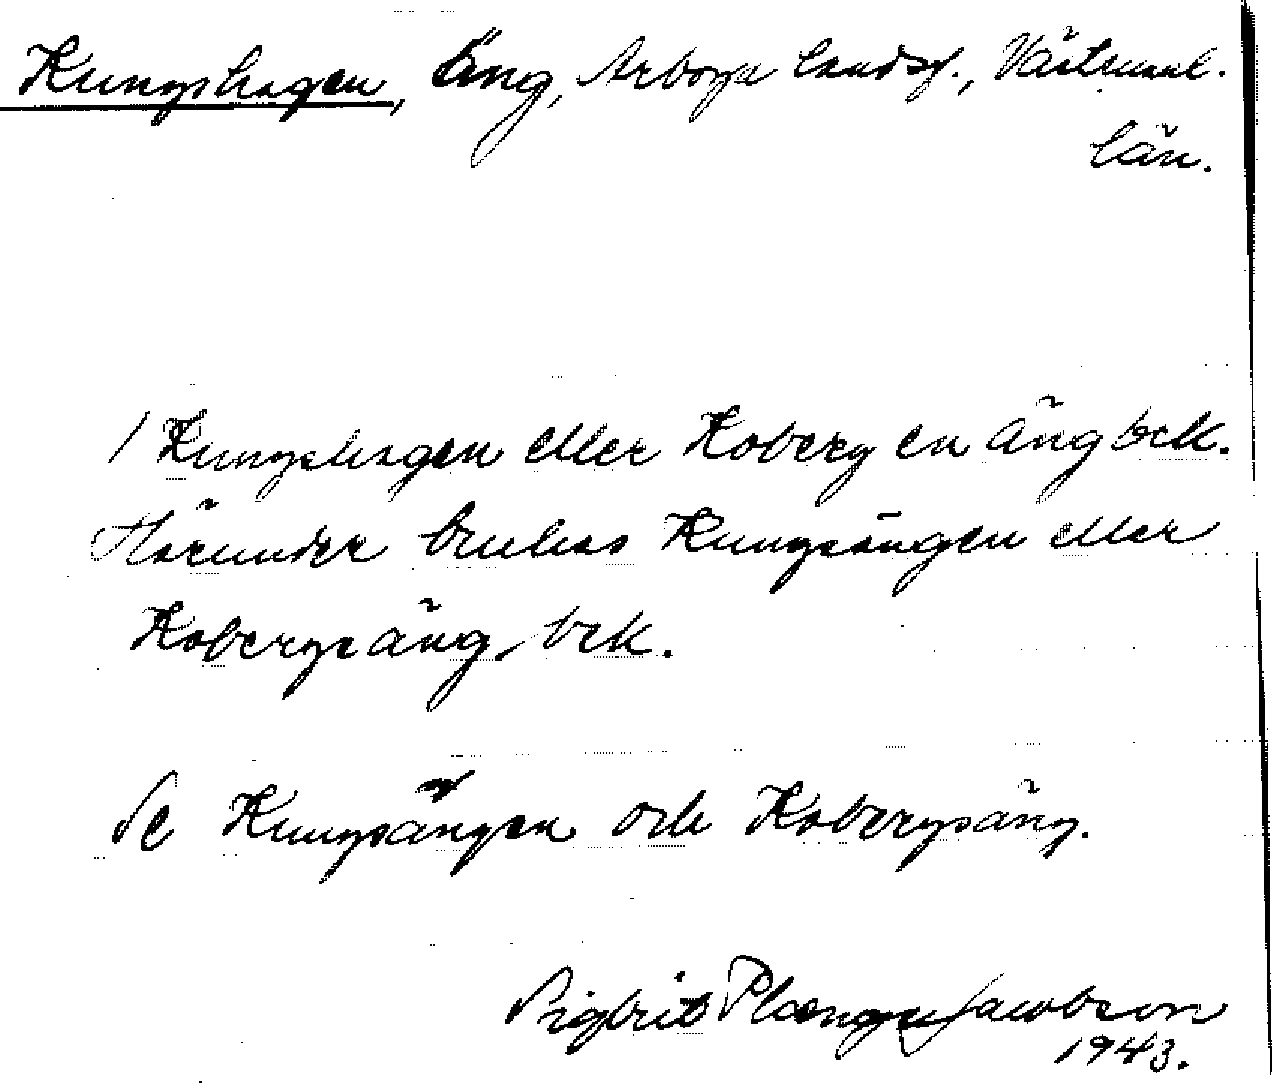 Kungshagen, Äng, Arboga landsf., Västmanl.
län.
/ Kungshagen eller Koberg en äng bek.
Härunder brukas Kungsängen eller
Kobergsäng, bek.
Se Kungsängen och Kobergsäng.
Sigbrit Plænge Jacobson
1943.